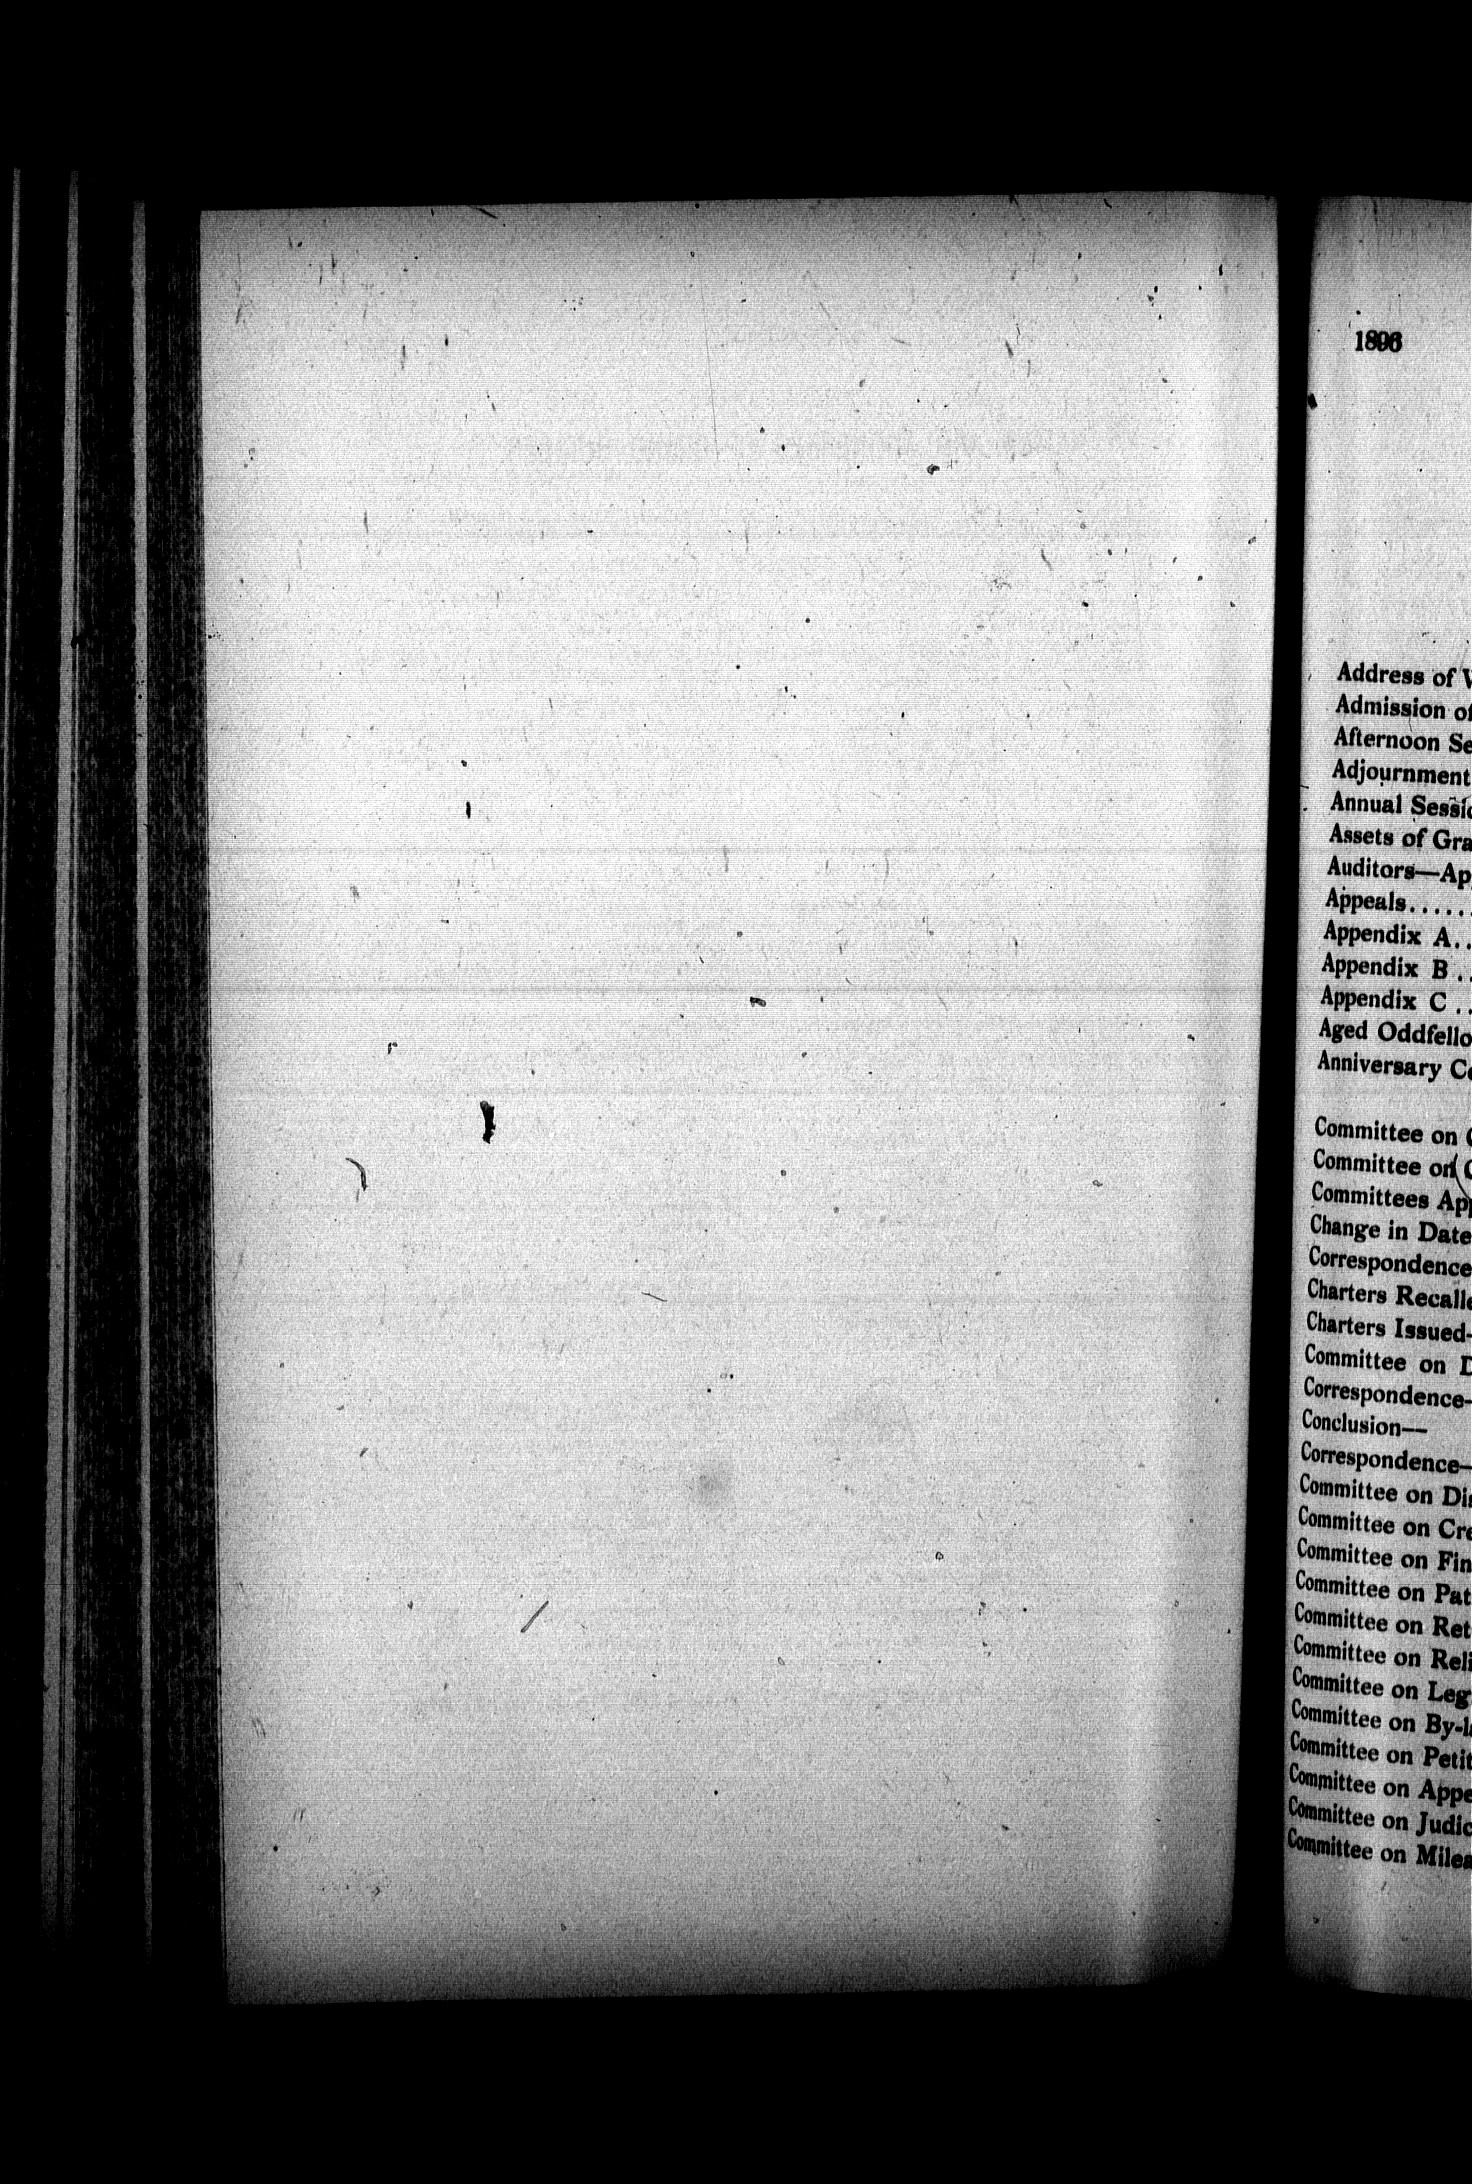 1896
Address of
Admission of
Afternoon Se
Adjournment
Annual Sessio
Assets of Gra
Auditors—Ap
Appeals......
Appendix A..
Appendix B..
Appendix C..
Aged Oddfello
Anniversary Co
Committee on
Committee on
Committees App
Change in Date
Correspondence
Charters Recalle
Charters Issued-
Committee on D
Correspondence-
Conclusion—
Correspondence—
Committee on Dis
Committee on Cre
Committee on Fin
Committee on Pat
Committee on Ret
Committee on Reli
Committee on Leg
Committee on By-la
Committee on Petit
Committee on Appe
Committee on Judic
Committee on Milea